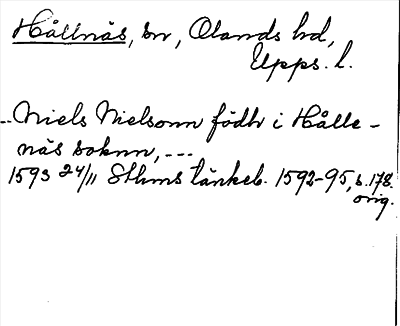 Hållnäs, sn, Olands hd,
Upps. l.
--Niels Nielsonn födh i Hålle-
näs soknn, ---
1593 24/11 Sthms tänkeb. 1592-95, s. 178.
orig.